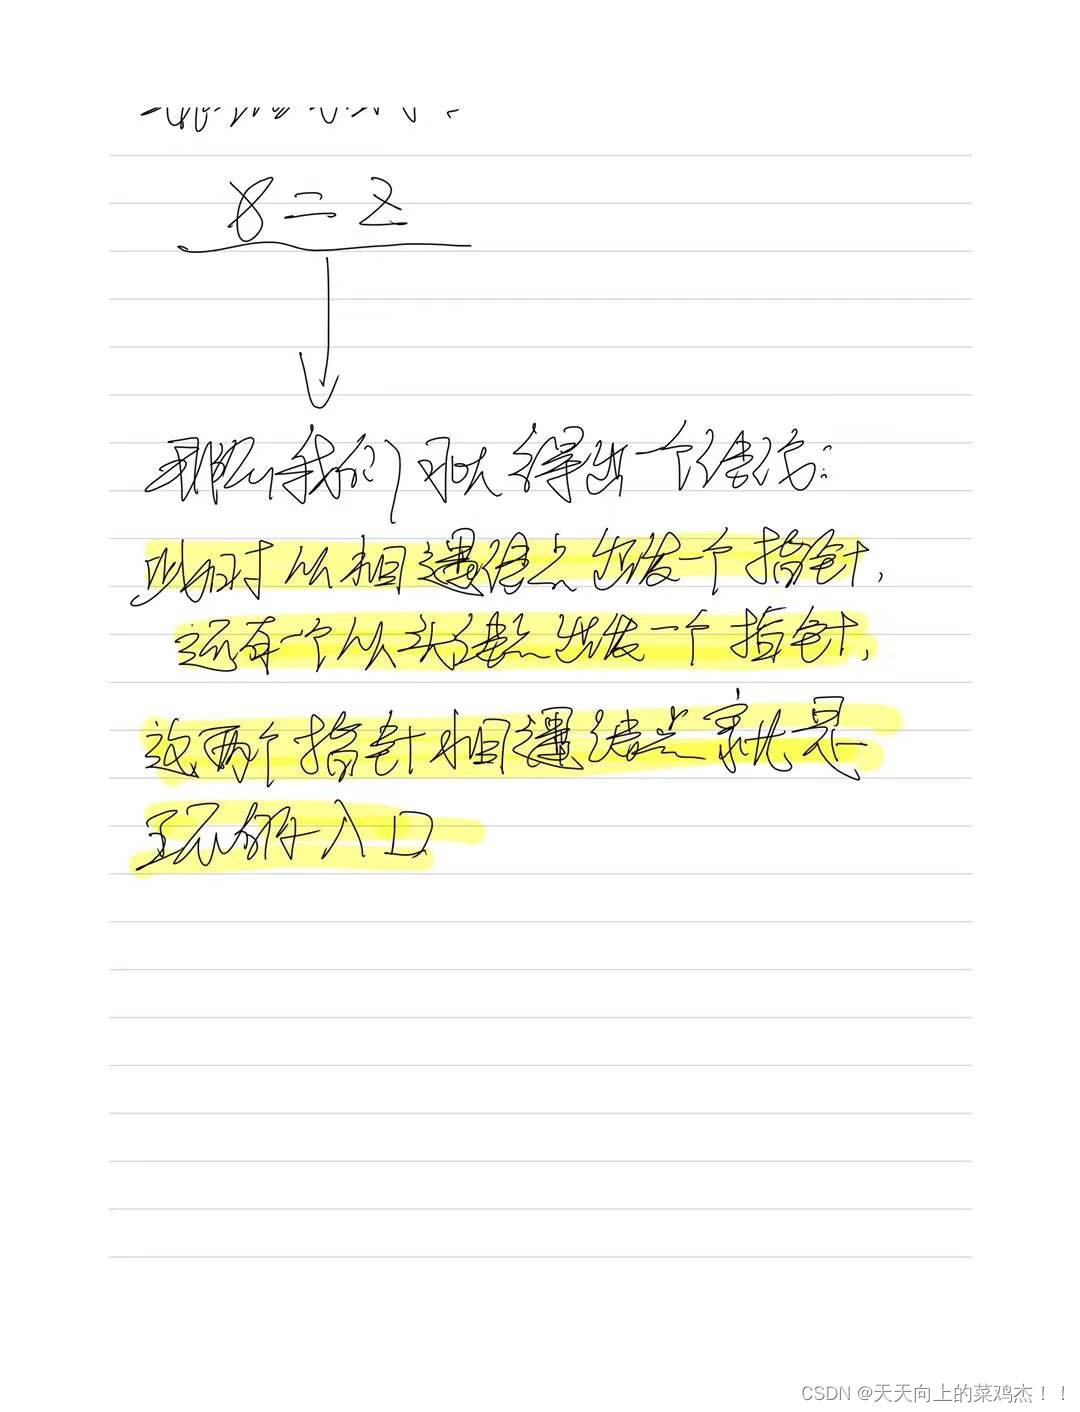 x = z
那么我们可以得出一个结论:
此时从相遇结点出发一个指针,
还有一个从头结点出发一个指针,
这两个指针相遇结点就是
环的入口
CSDN @天天向上的菜鸡杰！！